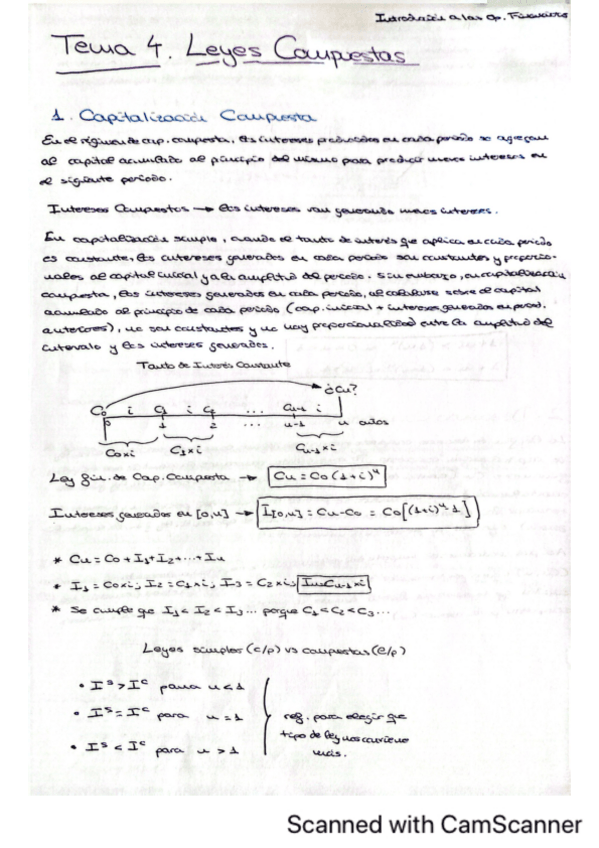 Introducción a las Op. Financieras
Tema 4. Leyes Compuestas
1. Capitalización Compuesta
En el régimen de cap. compuesta, los intereses producidos en cada periodo se agregan
al capital acumulado al principio del mismo para producir nuevos intereses en
el siguiente periodo.
Intereses Compuestos → los intereses van generando nuevos intereses.
En capitalización simple, cuando el tanto de interés que aplica en cada periodo
es constante, los intereses generados en cada periodo son constantes y proporcio-
nales al capital inicial y a la amplitud del periodo. Sin embargo, en capitalización
compuesta, los intereses generados en cada periodo, al calcularse sobre el capital
acumulado al principio de cada periodo (cap. inicial + intereses generados en period.
anteriores), no son constantes y no hay proporcionalidad entre la amplitud del
intervalo y los intereses generados.
Tanto de Interés Constante
¿Cn?
C0 i C1 i C2 ... Cn-1 i
0 1 2 ... n-1 n años
C0×i C1×i Cn-1×i
Ley Fin. de Cap. Compuesta → Cn = C0(1+i)^n
Intereses generados en [0,n] → I[0,n] = Cn-C0 = C0[(1+i)^n-1]
* Cn = C0 + I1+I2+...+In
* I1 = C0×i; I2 = C1×i; I3 = C2×i; In=Cn-1×i
* Se cumple que I1 < I2 < I3... porque C1<C2<C3...
Leyes simples (c/p) vs compuestas (l/p)
• I^s > I^c para n < 1
• I^s = I^c para n = 1
• I^s < I^c para n > 1
reg. para elegir que
tipo de ley nos conviene
más.
Scanned with CamScanner